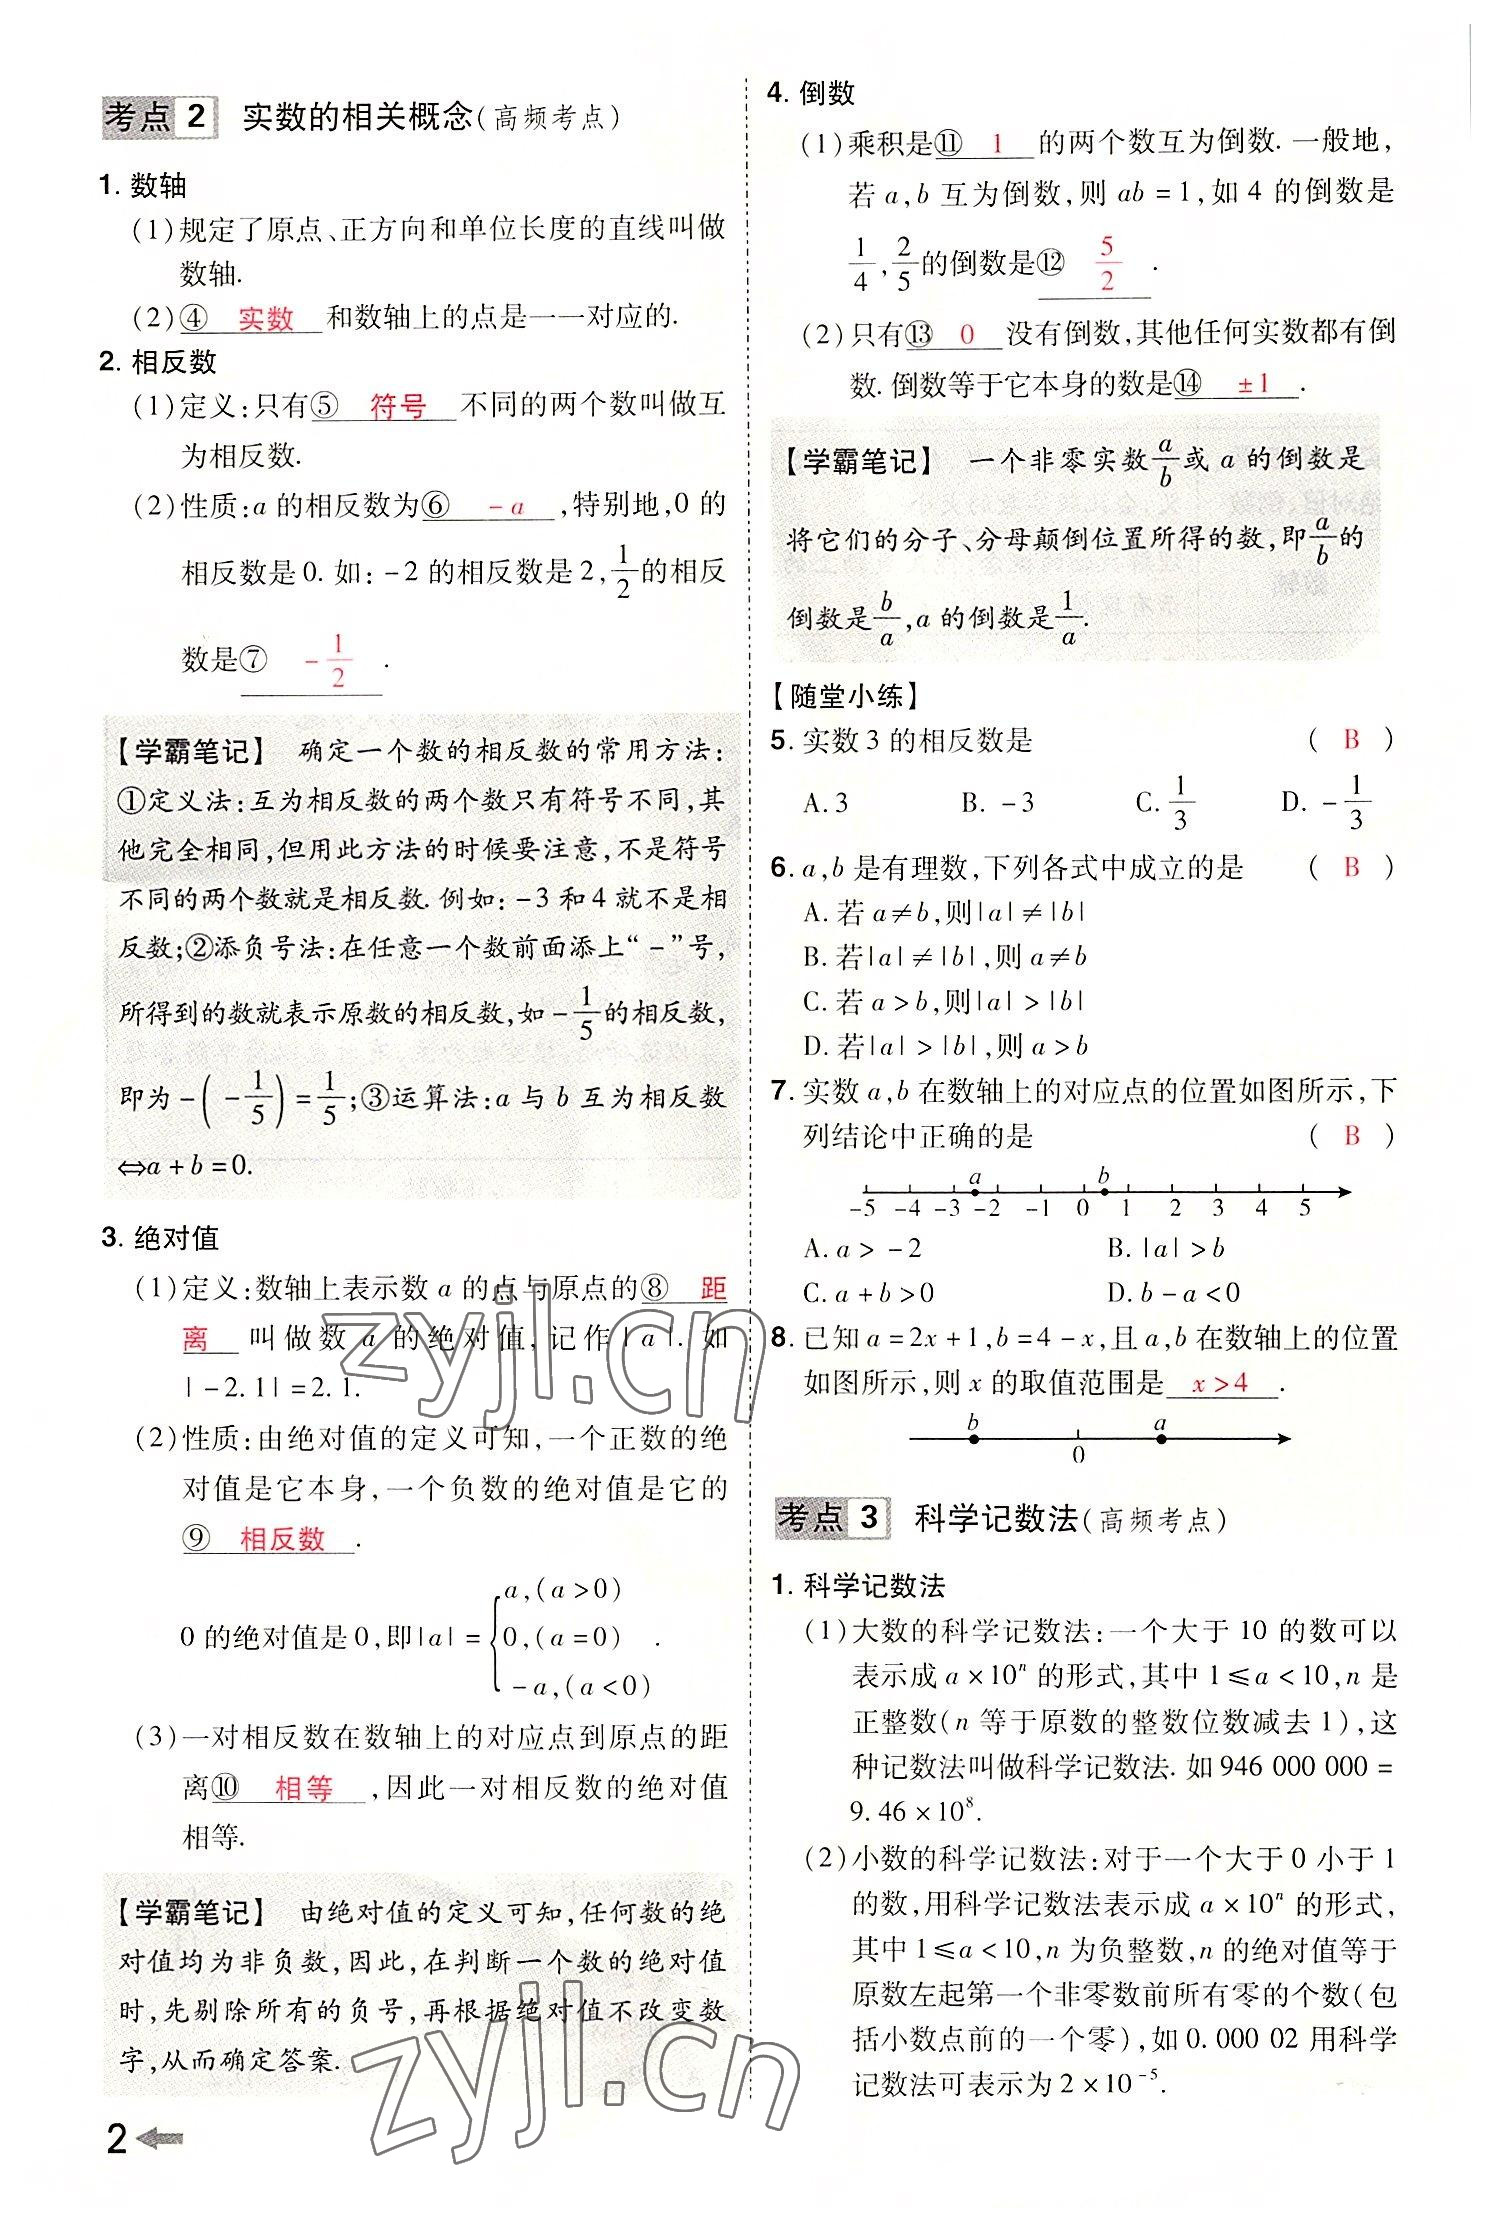 考点 2 实数的相关概念(高频考点)
1. 数轴
(1)规定了原点、正方向和单位长度的直线叫做
数轴.
(2)④ 实数 和数轴上的点是一一对应的.
2. 相反数
(1)定义:只有⑤ 符号 不同的两个数叫做互
为相反数.
(2)性质:a 的相反数为⑥ -a ,特别地,0 的
相反数是 0. 如: -2 的相反数是 2, 1/2 的相反
数是⑦ -1/2 .
【学霸笔记】 确定一个数的相反数的常用方法:
①定义法:互为相反数的两个数只有符号不同,其
他完全相同,但用此方法的时候要注意,不是符号
不同的两个数就是相反数. 例如: -3 和 4 就不是相
反数;②添负号法:在任意一个数前面添上“-”号,
所得到的数就表示原数的相反数,如 -1/5 的相反数,
即为 -(-1/5) = 1/5;③运算法:a 与 b 互为相反数
⇔a+b=0.
3. 绝对值
(1)定义:数轴上表示数 a 的点与原点的⑧ 距
离 叫做数 a 的绝对值,记作|a|. 如
|-2.1|=2.1.
(2)性质:由绝对值的定义可知,一个正数的绝
对值是它本身,一个负数的绝对值是它的
⑨ 相反数 .
a,(a>0)
0 的绝对值是 0,即|a|={0,(a=0) .
-a,(a<0)
(3)一对相反数在数轴上的对应点到原点的距
离⑩ 相等 ,因此一对相反数的绝对值
相等.
【学霸笔记】 由绝对值的定义可知,任何数的绝
对值均为非负数,因此,在判断一个数的绝对值
时,先剔除所有的负号,再根据绝对值不改变数
字,从而确定答案.
2
4. 倒数
(1)乘积是⑪ 1 的两个数互为倒数. 一般地,
若 a,b 互为倒数,则 ab=1,如 4 的倒数是
1/4, 2/5 的倒数是⑫ 5/2 .
(2)只有⑬ 0 没有倒数,其他任何实数都有倒
数. 倒数等于它本身的数是⑭ ±1 .
【学霸笔记】 一个非零实数 a/b 或 a 的倒数是
将它们的分子、分母颠倒位置所得的数,即 a/b 的
倒数是 b/a, a 的倒数是 1/a.
【随堂小练】
5. 实数 3 的相反数是 ( B )
A. 3 B. -3 C. 1/3 D. -1/3
6. a,b 是有理数,下列各式中成立的是 ( B )
A. 若 a≠b,则|a|≠|b|
B. 若|a|≠|b|,则 a≠b
C. 若 a>b,则|a|>|b|
D. 若|a|>|b|,则 a>b
7. 实数 a,b 在数轴上的对应点的位置如图所示,下
列结论中正确的是 ( B )
a b
-5 -4 -3 -2 -1 0 1 2 3 4 5
A. a>-2 B. |a|>b
C. a+b>0 D. b-a<0
8. 已知 a=2x+1,b=4-x,且 a,b 在数轴上的位置
如图所示,则 x 的取值范围是 x>4 .
b a
0
考点 3 科学记数法(高频考点)
1. 科学记数法
(1)大数的科学记数法:一个大于 10 的数可以
表示成 a×10ⁿ 的形式,其中 1≤a<10,n 是
正整数(n 等于原数的整数位数减去 1),这
种记数法叫做科学记数法. 如 946 000 000=
9.46×10⁸.
(2)小数的科学记数法:对于一个大于 0 小于 1
的数,用科学记数法表示成 a×10ⁿ 的形式,
其中 1≤a<10,n 为负整数,n 的绝对值等于
原数左起第一个非零数前所有零的个数(包
括小数点前的一个零),如 0.000 02 用科学
记数法可表示为 2×10⁻⁵.
zyjl.cn
zyjl.cn